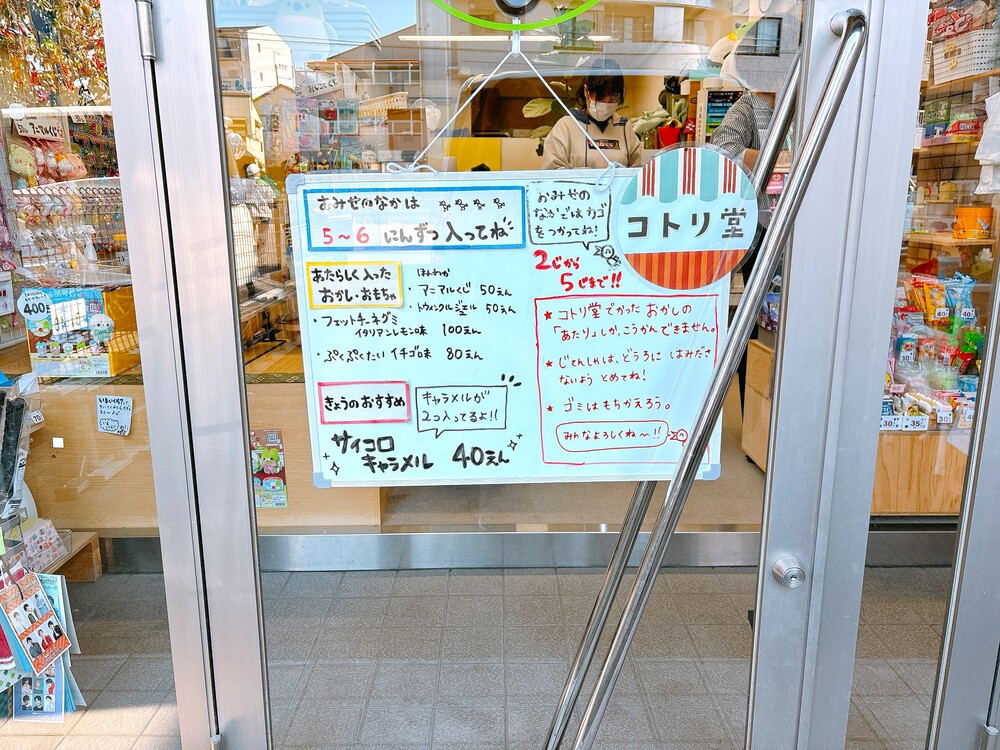 おみせのなかは
5～6 にんずつ 入ってね
おみせの
なかではカゴ
をつかってね!
コトリ堂
2じから
5じまで!!
あたらしく入った
おかし・おもちゃ
ほんわか
・アニマルくじ 50えん
・トゥインクルジェル 50えん
・フェットチーネグミ
イタリアンレモン味 100えん
・ぷくぷくたい イチゴ味 80えん
きょうのおすすめ
キャラメルが
2つ入ってるよ!!
サイコロ
キャラメル 40えん
★ コトリ堂でかった おかしの
「あたり」しか、こうかんできません。
★ じてんしゃは、どうろに はみださ
ないよう とめてね!
★ ゴミはもちかえろう。
みんなよろしくね～!!
400
70
30
35
30